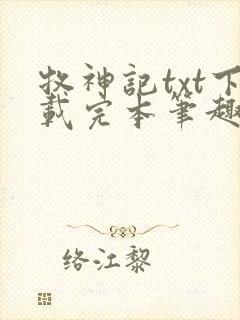 牧神記txt下
載完本筆趣
络江黎